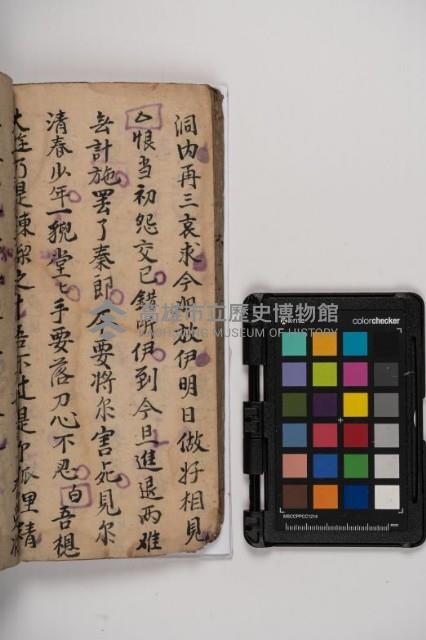 洞内再三哀求今旦放伊明日做好相見
△恨当初怨交已錯听伊到今旦進退两难
无計施罢了秦郎不要將尔害死見尔
清春少年一貌堂〻手要落刀心不忍 白 吾想
是陳
之
不过是
狐狸精
高雄市立歷史博物館
KAOHSIUNG MUSEUM OF HISTORY
calibrite
colorchecker
MSCCPPCC1214
mm